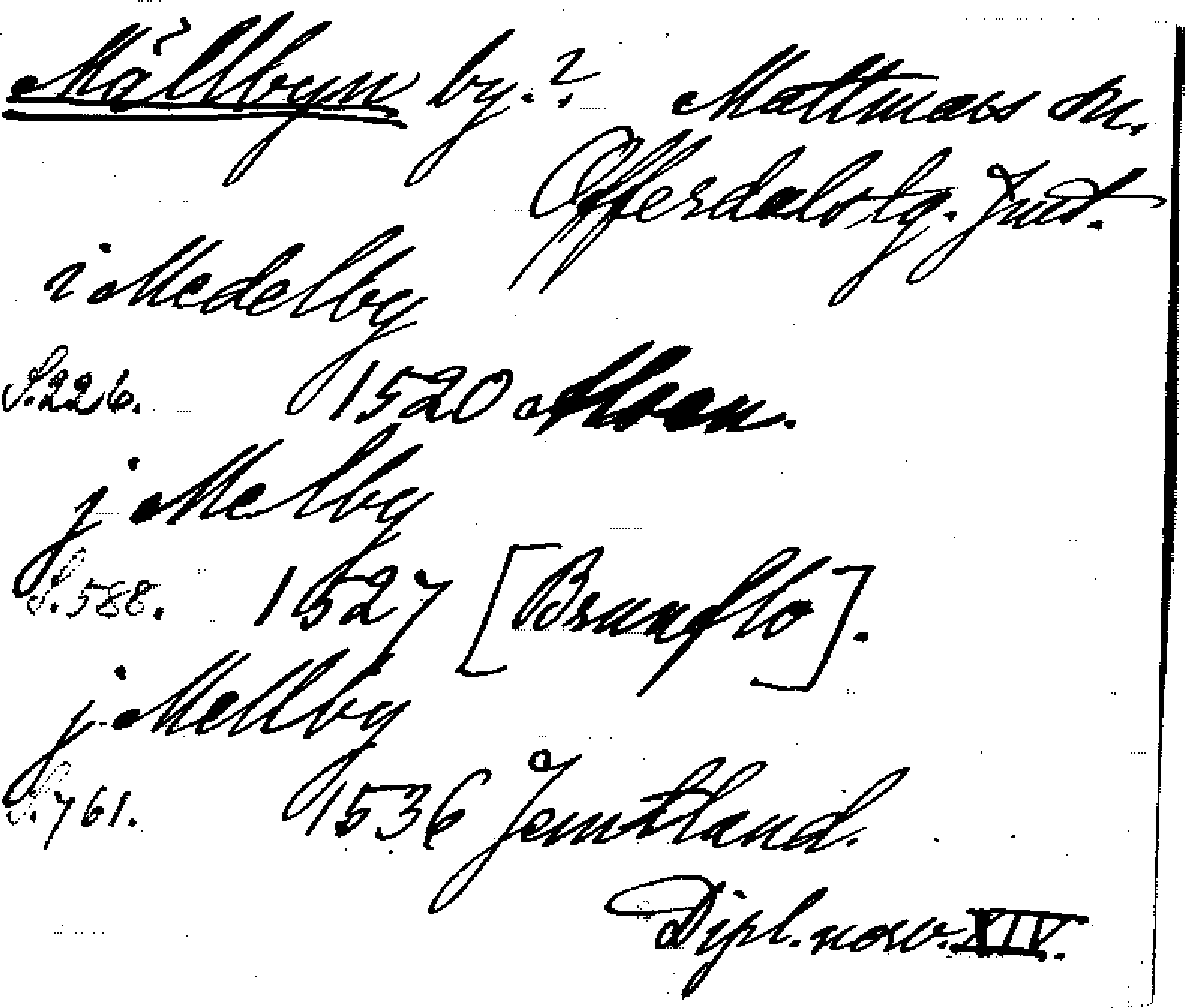 Mällbyn by.? Mattmars sn.
Offerdals tg. Jmt.
i Medelby
S.226. 1520 Alsen.
j Melby
S.588. 1527 [Brunflo].
j Mellby
S.761. 1536 Jemtland.
Dipl. norv. XIV.